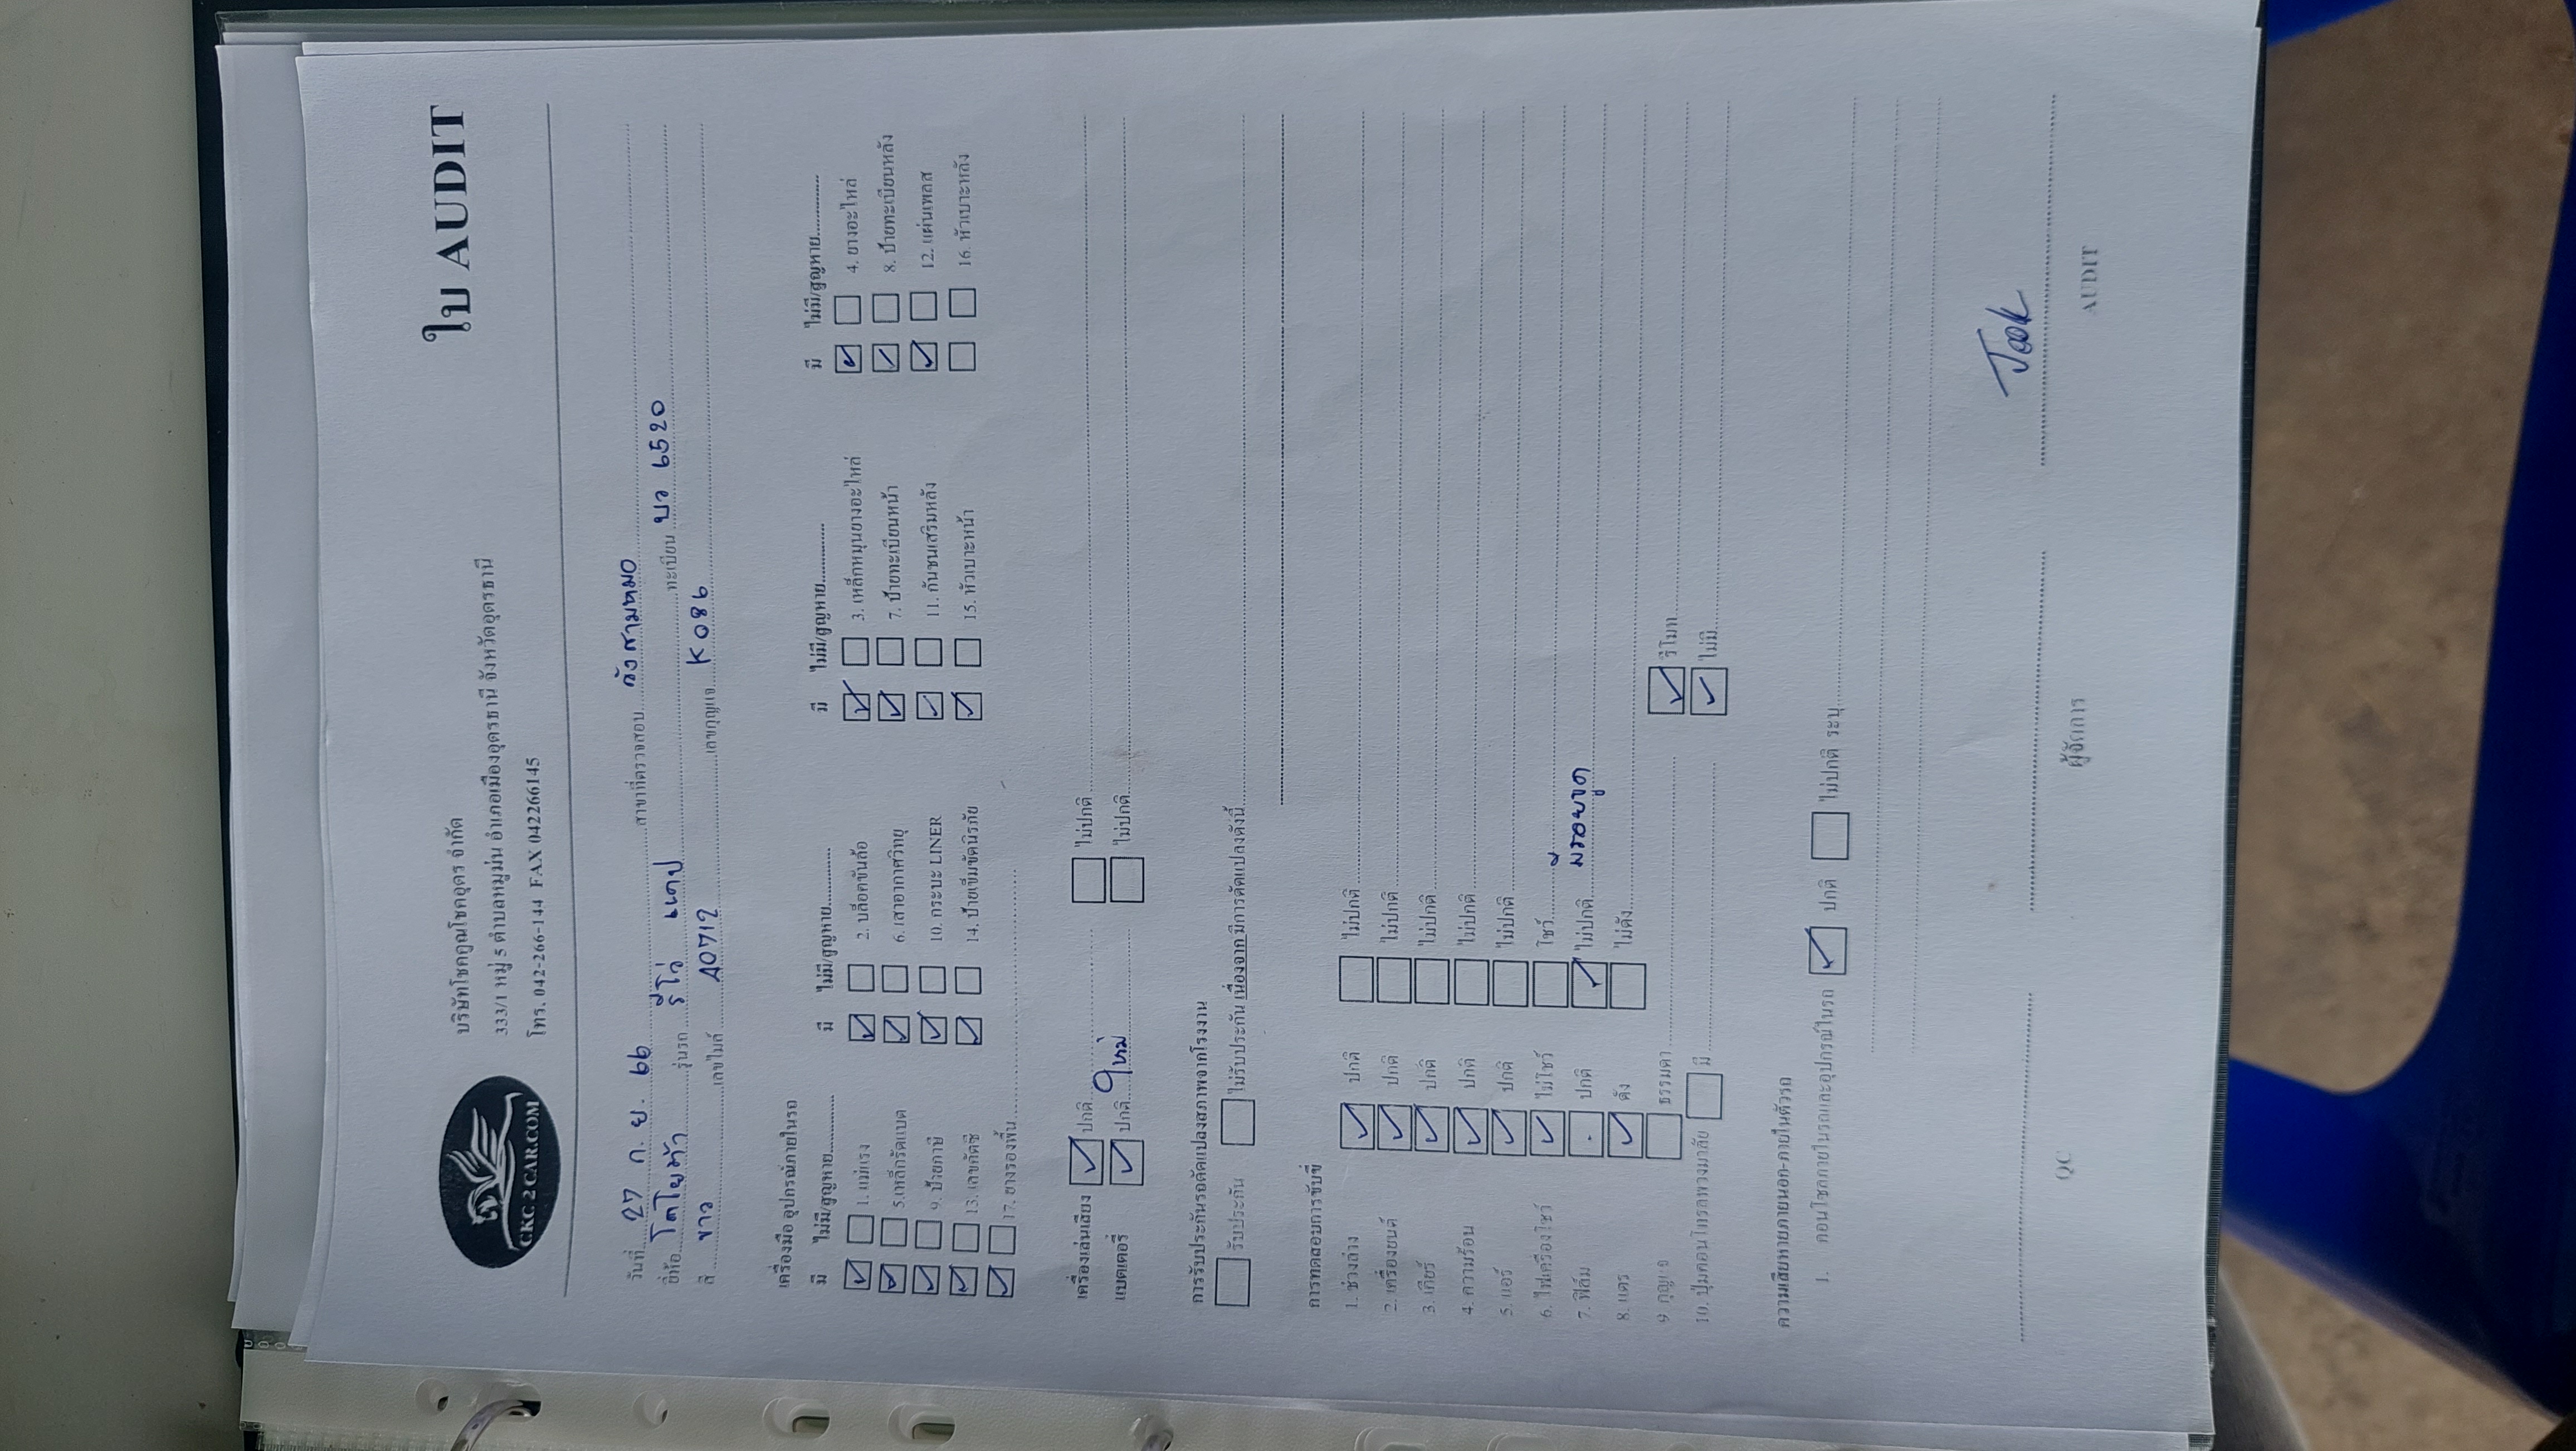 CKC 2 CAR.COM
บริษัทโชคคูณโชคอุดร จำกัด
ใบ AUDIT
333/1 หมู่ 5 ตำบลหมูม่น อำเภอเมืองอุดรธานี จังหวัดอุดรธานี
โทร. 042-266-144 FAX 042266145
วันที่ 27 ก.ย. 66 สาขาที่ตรวจสอบ วังสามหมอ
ยี่ห้อ โตโยต้า รุ่นรถ รีโว่ เตี้ย ทะเบียน บว 6520
สี ขาว เลขไมล์ 40712 เลขกุญแจ K 086
เครื่องมือ อุปกรณ์ภายในรถ
มี ไม่มี/สูญหาย มี ไม่มี/สูญหาย มี ไม่มี/สูญหาย มี ไม่มี/สูญหาย
1. แม่แรง 2. บล็อคขันล้อ 3. เหล็กหมุนยางอะไหล่ 4. ยางอะไหล่
5.เหล็กรัดแบต 6. เสาอากาศวิทยุ 7. ป้ายทะเบียนหน้า 8. ป้ายทะเบียนหลัง
9. ป้ายภาษี 10. กระบะ LINER 11. กันชนเสริมหลัง 12. แผ่นเพลส
13. เลขคัสซี 14. ป้ายเข็มขัดนิรภัย 15. หัวเบาะหน้า 16. หัวเบาะหลัง
17. ยางรองพื้น
เครื่องเล่นเสียง ปกติ ไม่ปกติ
แบตเตอรี่ ปกติ ใหม่ ไม่ปกติ
การรับประกันรถดัดแปลงสภาพจากโรงงาน
รับประกัน ไม่รับประกัน เนื่องจาก มีการดัดแปลงดังนี้
การทดสอบการขับขี่
1. ช่วงล่าง ปกติ ไม่ปกติ
2. เครื่องยนต์ ปกติ ไม่ปกติ
3. เกียร์ ปกติ ไม่ปกติ
4. ความร้อน ปกติ ไม่ปกติ
5. แอร์ ปกติ ไม่ปกติ
6. ไฟเครื่องโชว์ ไม่โชว์ โชว์
7. ฟิล์ม ปกติ ไม่ปกติ มีรอยขูด
8. แตร ดัง ไม่ดัง
9. กุญแจ ธรรมดา รีโมท
10. ปุ่มคอนโทรลพวงมาลัย มี ไม่มี
ความเสียหายภายนอก-ภายในตัวรถ
1. คอนโซลภายในรถและอุปกรณ์ในรถ ปกติ ไม่ปกติ ระบุ
Jook
QC ผู้จัดการ AUDIT